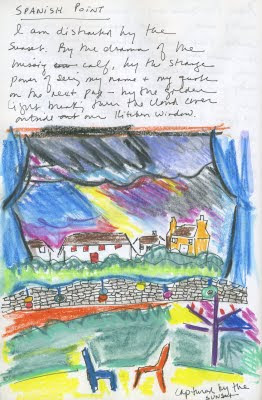 SPANISH POINT
I am distracted by the
Sunset. By the drama of the
missing calf, by the strange
power of seeing my name + my quote
on the next page - by the golden
light breaking thru the cloud cover
outside our Kitchen window.
captured by the
sunset